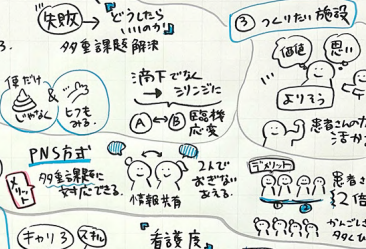 失敗 → どうしたら
いいのか
多重課題解決
便だけ
じゃなく
&
ヒフも
みる。
滴下でなく
シリンジに
A ↔ B 臨機
応変
PNS方式
メリット
多重課題に
対応できる。
情報共有
2人で
おぎない
あえる。
キャリコ
看護度
③ つくりたい施設
価値
思い
よりそう
患者さんの
活か
デメリット
患者さ
2倍
かんごし